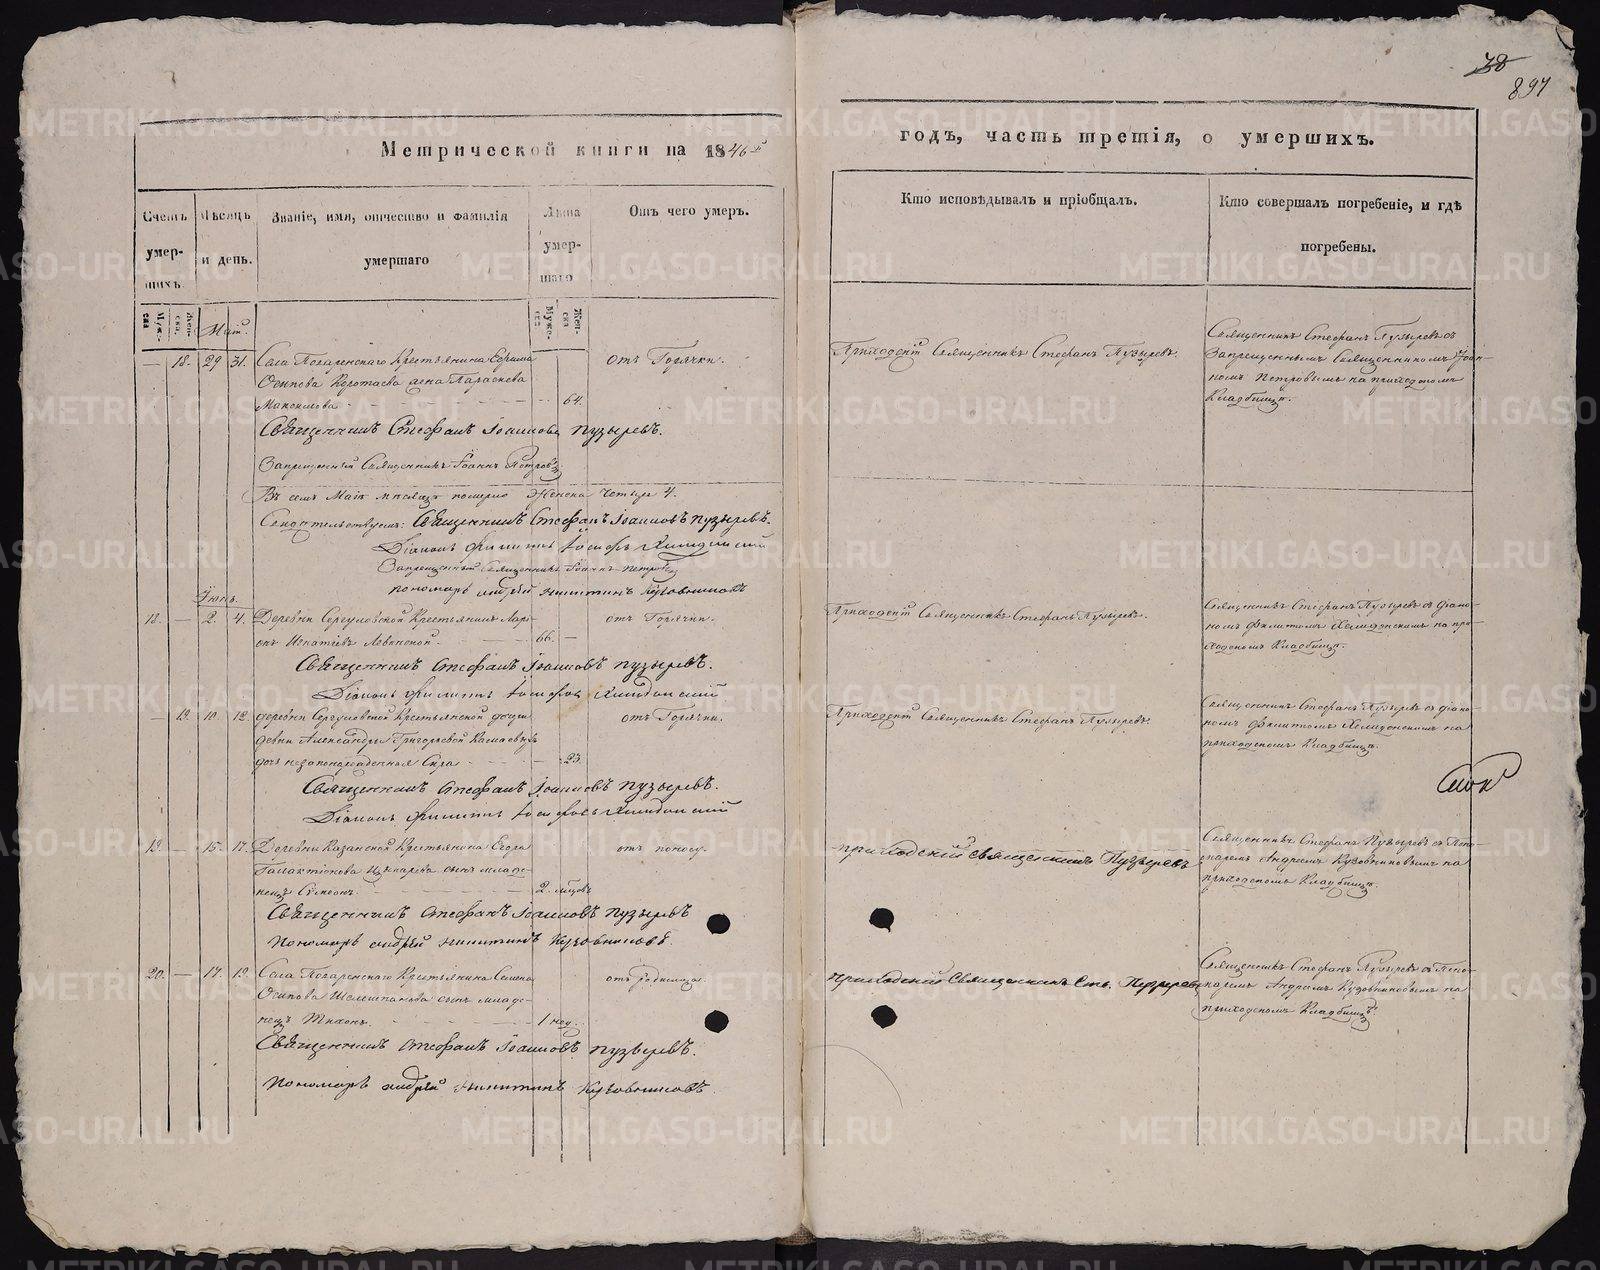 78
897
Метрической книги на 1846й
годъ, часть третія, о умершихъ.
Счетъ умерших.
Мѣсяцъ и день.
Званіе, имя, отчество и фамилія умершаго
Лѣта умершаго
Отъ чего умеръ.
Кто исповѣдывалъ и пріобщалъ.
Кто совершалъ погребеніе, и гдѣ погребены.
Муже-ска
Жен-ска
Муже-ска
Жен-ска
Маій.
— 18. 29 31. Села Крестьянина Ефрима
Осипова Коротаева жена Параскева
Максимова 64.
отъ Горячки.
Приходскій Священникъ Стефанъ Пузыревъ.
Священникъ Стефанъ Пузыревъ съ
Запрещеннымъ Священникомъ Іоан-
номъ Петровымъ на приходскомъ
Кладбищѣ.
Священникъ Стефанъ Іоанновъ Пузыревъ.
Запрещенный Священникъ Іоаннъ Петровъ
Въ семъ Маіѣ мѣсяцѣ померло Женска четыре 4.
Свидѣтельствуемъ: Священникъ Стефанъ Іоанновъ Пузыревъ.
Діаконъ Филиппъ Іосифовъ
Запрещенный Священникъ Іоаннъ Петровъ
Пономарь Андрей Никитинъ Кузовниковъ
Іюнь.
18. — 2. 4. Деревни Сергуловской Крестьянинъ Лари-
онъ Игнатіевъ 66. —
отъ Горячки.
Приходскій Священникъ Стефанъ Пузыревъ.
Священникъ Стефанъ Пузыревъ съ Діако-
номъ Филиппомъ на при-
ходскомъ Кладбищѣ.
Священникъ Стефанъ Іоанновъ Пузыревъ.
Діаконъ Филиппъ Іосифовъ
— 19. 10. 12. деревни Сергуловской Крестьянской
девки Александры Григорьевой
дочь незаконнорожденная — 23.
отъ Горячки.
Приходскій Священникъ Стефанъ Пузыревъ.
Священникъ Стефанъ Пузыревъ съ Діако-
номъ Филиппомъ на
приходскомъ Кладбищѣ.
Священникъ Стефанъ Іоанновъ Пузыревъ.
Діаконъ Филиппъ Іосифовъ
19. — 15. 17. Деревни Казанской Крестьянина Егора
Галактіонова сынъ младе-
нецъ Сумеонъ 2. мѣсяцъ
отъ поносу.
приходскій священникъ Пузыревъ
Священникъ Стефанъ Пузыревъ съ Поно-
маремъ Андреемъ Кузовниковымъ на
приходскомъ Кладбищѣ.
Священникъ Стефанъ Іоанновъ Пузыревъ
Пономарь Андрей Никитинъ Кузовниковъ.
20. — 17. 19. Села Крестьянина Семена
Осипова сынъ младе-
нецъ Тихонъ. 1 нед.
отъ родимца.
приходскій Священникъ Сте. Пузыревъ
Священникъ Стефанъ Пузыревъ съ Поно-
маремъ Андреемъ Кузовниковымъ на
приходскомъ Кладбищѣ.
Священникъ Стефанъ Іоанновъ Пузыревъ.
Пономарь Андрей Никитинъ Кузовниковъ.
METRIKI.GASO-URAL.RU